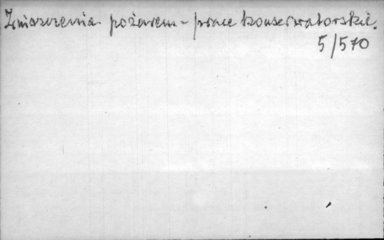 Zniszczenia pożarem - prace konserwatorskie.
5/570